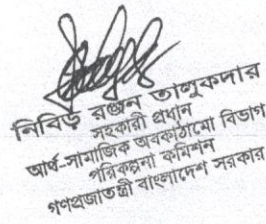 নিবিড় রঞ্জন তালুকদার
সহকারী প্রধান
আর্থ-সামাজিক অবকাঠামো বিভাগ
পরিকল্পনা কমিশন
গণপ্রজাতন্ত্রী বাংলাদেশ সরকার